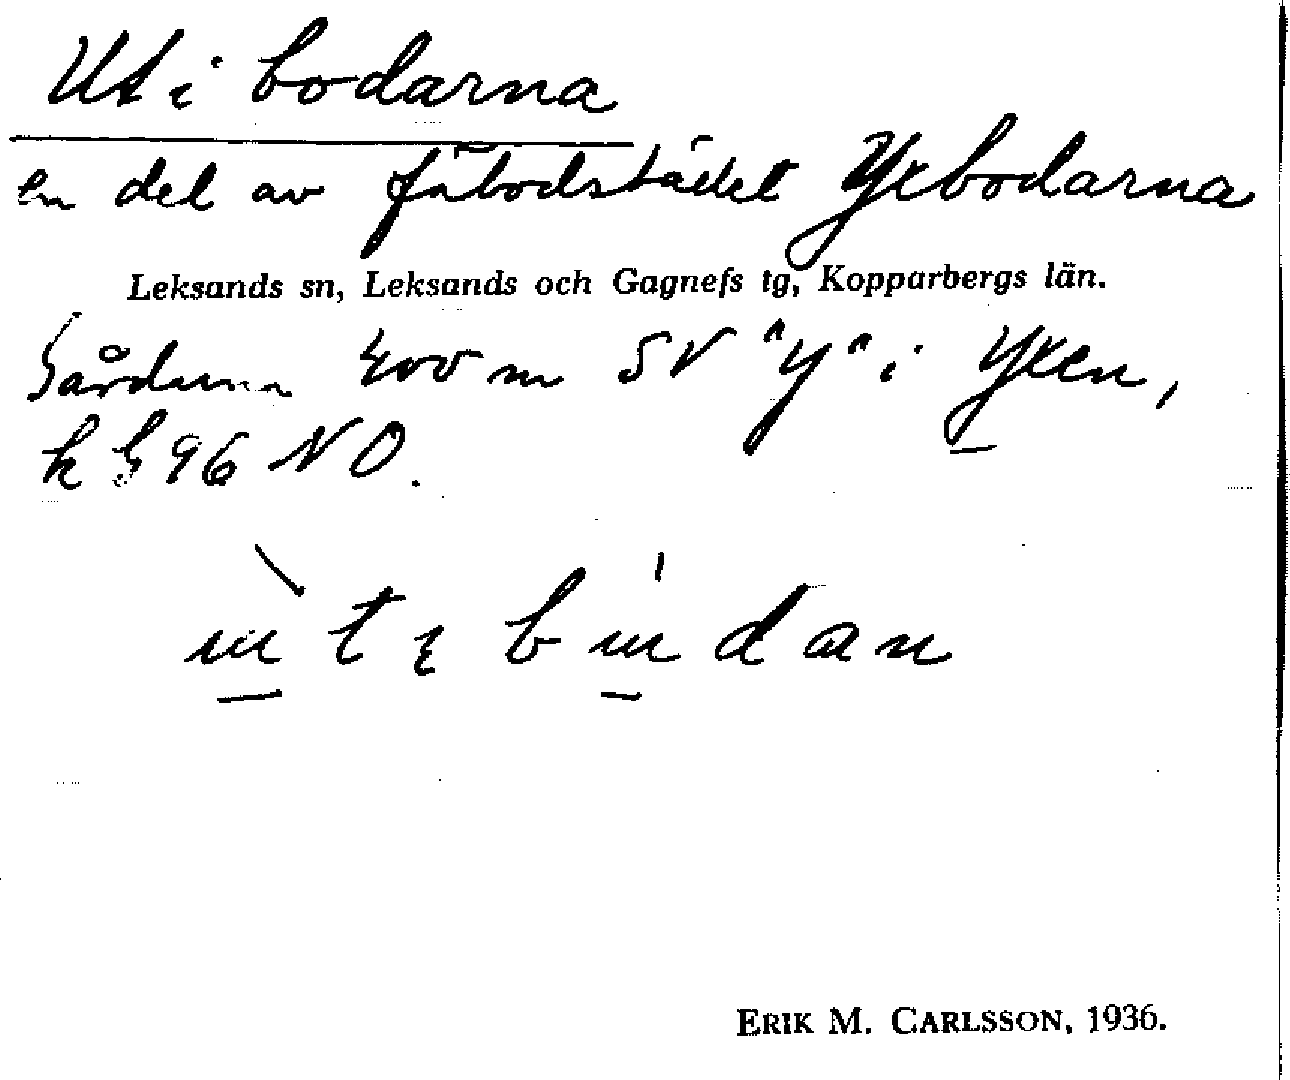 Ut i bodarna
en del av fäbodstället Yxbodarna
Leksands sn, Leksands och Gagnefs tg, Kopparbergs län.
Gårdarna 400 m SV "Y" i Yxen,
k b 96 NO.
ùtıbúdan
ERIK M. CARLSSON, 1936.